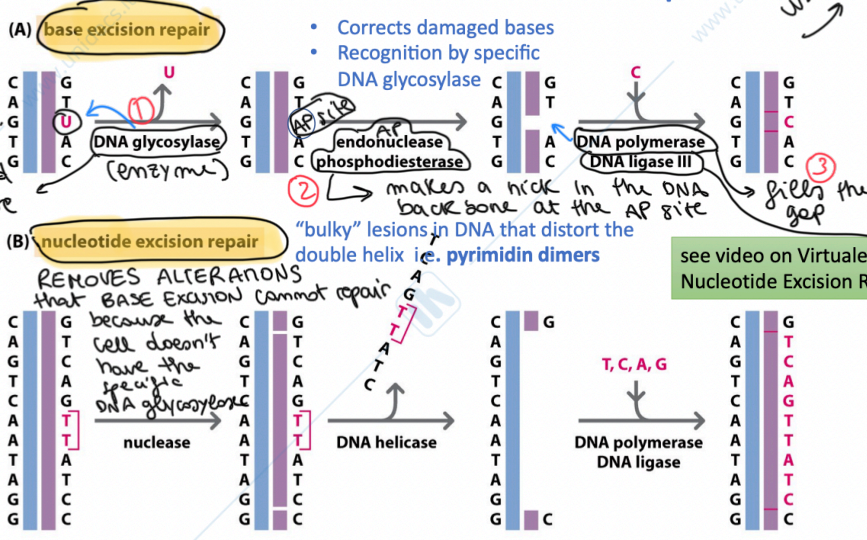 (A) base excision repair
• Corrects damaged bases
• Recognition by specific
DNA glycosylase
C G
A T
G U
T A
G C
1
U
DNA glycosylase
(enzyme)
C G
A T
G AP site
T A
G C
AP
endonuclease
phosphodiesterase
2
makes a nick in the DNA
backbone at the AP site
C G
A T
G
T A
G C
C
DNA polymerase
DNA ligase III
3
fills the
gap
C G
A T
G C
T A
G C
(B) nucleotide excision repair
"bulky" lesions in DNA that distort the
double helix i.e. pyrimidin dimers
see video on Virtuale
Nucleotide Excision R
REMOVES ALTERATIONS
that BASE EXCISION cannot repair
because the
cell doesn't
have the
specific
DNA glycosylase
C G
A T
G C
T A
C G
A T
A T
T A
A T
G C
G C
nuclease
C G
A T
G C
T A
C G
A T
A T
T A
A T
G C
G C
T
C
A
G
T
T
A
T
C
DNA helicase
C G
A
G
T
C
A
A
T
A
G
G C
T, C, A, G
DNA polymerase
DNA ligase
C G
A T
G C
T A
C G
A T
A T
T A
A T
G C
G C